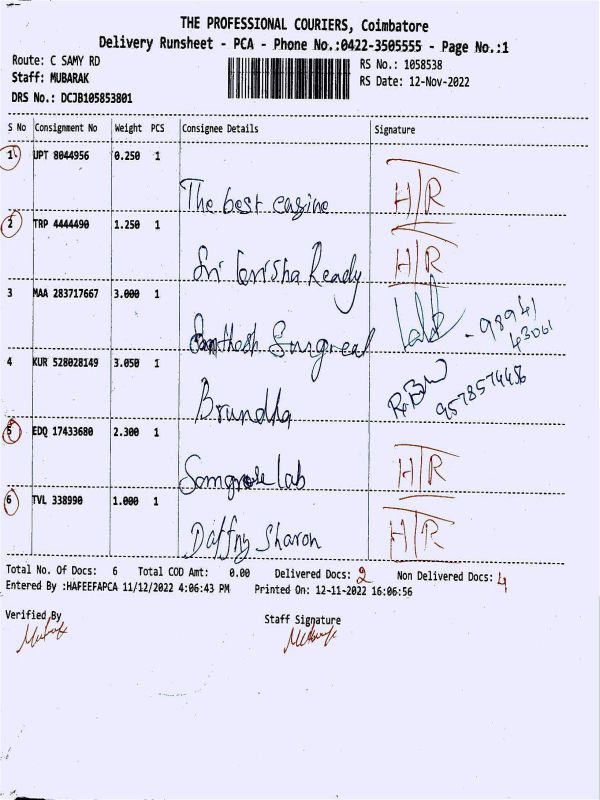 THE PROFESSIONAL COURIERS, Coimbatore
Delivery Runsheet - PCA - Phone No.:0422-3505555 - Page No.:1
Route: C SAMY RD
RS No.: 1058538
Staff: MUBARAK
RS Date: 12-Nov-2022
DRS No.: DCJB105853801
S No Consignment No Weight PCS Consignee Details Signature
1 UPT 8044956 0.250 1
The best H/R
2 TRP 4444490 1.250 1
Sri Ready H/R
3 MAA 283717667 3.000 1
Santhosh - 98941
43061
4 KUR 528028149 3.050 1
Brundha 9578574456
5 EDQ 17433680 2.300 1
lab H/R
6 TVL 338990 1.000 1
Daffny Sharon H/R
Total No. Of Docs: 6 Total COD Amt: 0.00 Delivered Docs: 2 Non Delivered Docs: 4
Entered By :HAFEEFAPCA 11/12/2022 4:06:43 PM Printed On: 12-11-2022 16:06:56
Verified By
Staff Signature